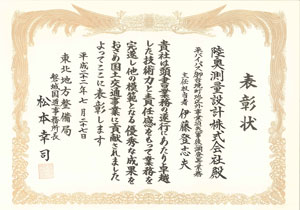 表彰状
陸奥測量設計株式会社殿
主任担当者 伊藤登志夫
貴社は頭書業務の遂行にあたり卓越
した技術力と責任感をもって業務を
完遂し他の模範となる優秀な成果を
おさめ国土交通事業に貢献されました
よってここに表彰します
平成二十二年七月二十七日
東北地方整備局
磐城国道事務所長
松本幸司